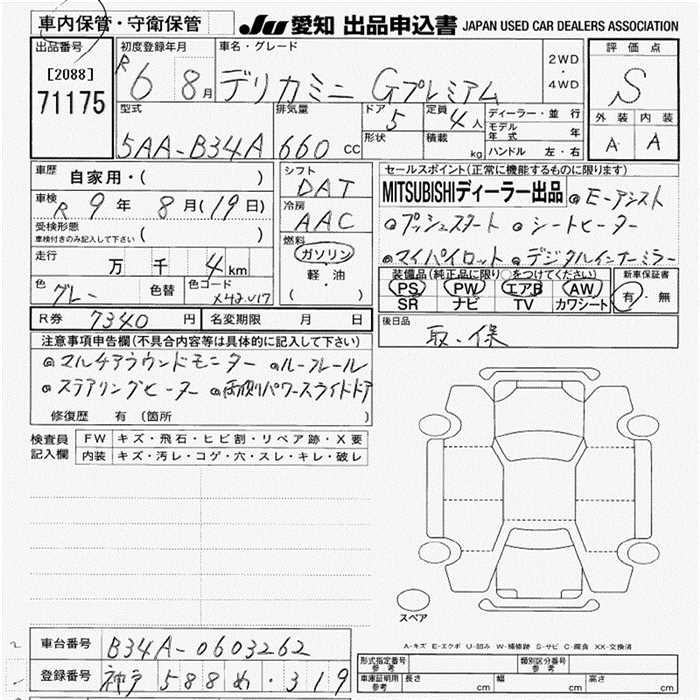 車内保管・守衛保管
JU 愛知 出品申込書 JAPAN USED CAR DEALERS ASSOCIATION
出品番号 [2088] 71175
初度登録年月 R6 8月
車名・グレード デリカミニ Gプレミアム
2WD・4WD
評価点 S
外装 内装
A A
型式 5AA-B34A
排気量 660 cc
ドア 5
形状
定員 4人
積載 kg
ディーラー・並行
モデル年式 年
ハンドル 左・右
車歴 自家用・( )
車検 R9年 8月(19日)
受検形態 ( )
車検付きのみ記入して下さい
走行 万 千 4km
色 グレー 色替 色コード X42 U17
シフト DAT
冷房 AAC
燃料 ガソリン
軽・油
( )
セールスポイント(正常に機能するものに限ります)
MITSUBISHIディーラー出品 ◎Eーアシスト
◎プッシュスタート ◎シートヒーター
◎マイパイロット ◎デジタルインナーミラー
装備品(純正品に限り○をつけてください)
PS PW エアB AW
SR ナビ TV カワシート
新車保証書
有・無
R券 7340円 名変期限 月 日
後日品 取.保
注意事項申告欄(不具合内容等は具体的に記入して下さい)
◎マルチアラウンドモニター ◎ルーフレール
◎ステアリングヒーター ◎両側パワースライドドア
修復歴 有(箇所 )
検査員記入欄
FW キズ・飛石・ヒビ割・リペア跡・X要
内装 キズ・汚レ・コゲ・穴・スレ・キレ・破レ
スペア
A-キズ E-エクボ U-凹み W-補修跡 S-サビ C-腐食 XX-交換済
車台番号 B34A-0603262
登録番号 神戸 588 め・319
形式指定番号 参考
類別区分番号 参考
車庫証明用 参考 長さ cm 幅 cm 高さ cm